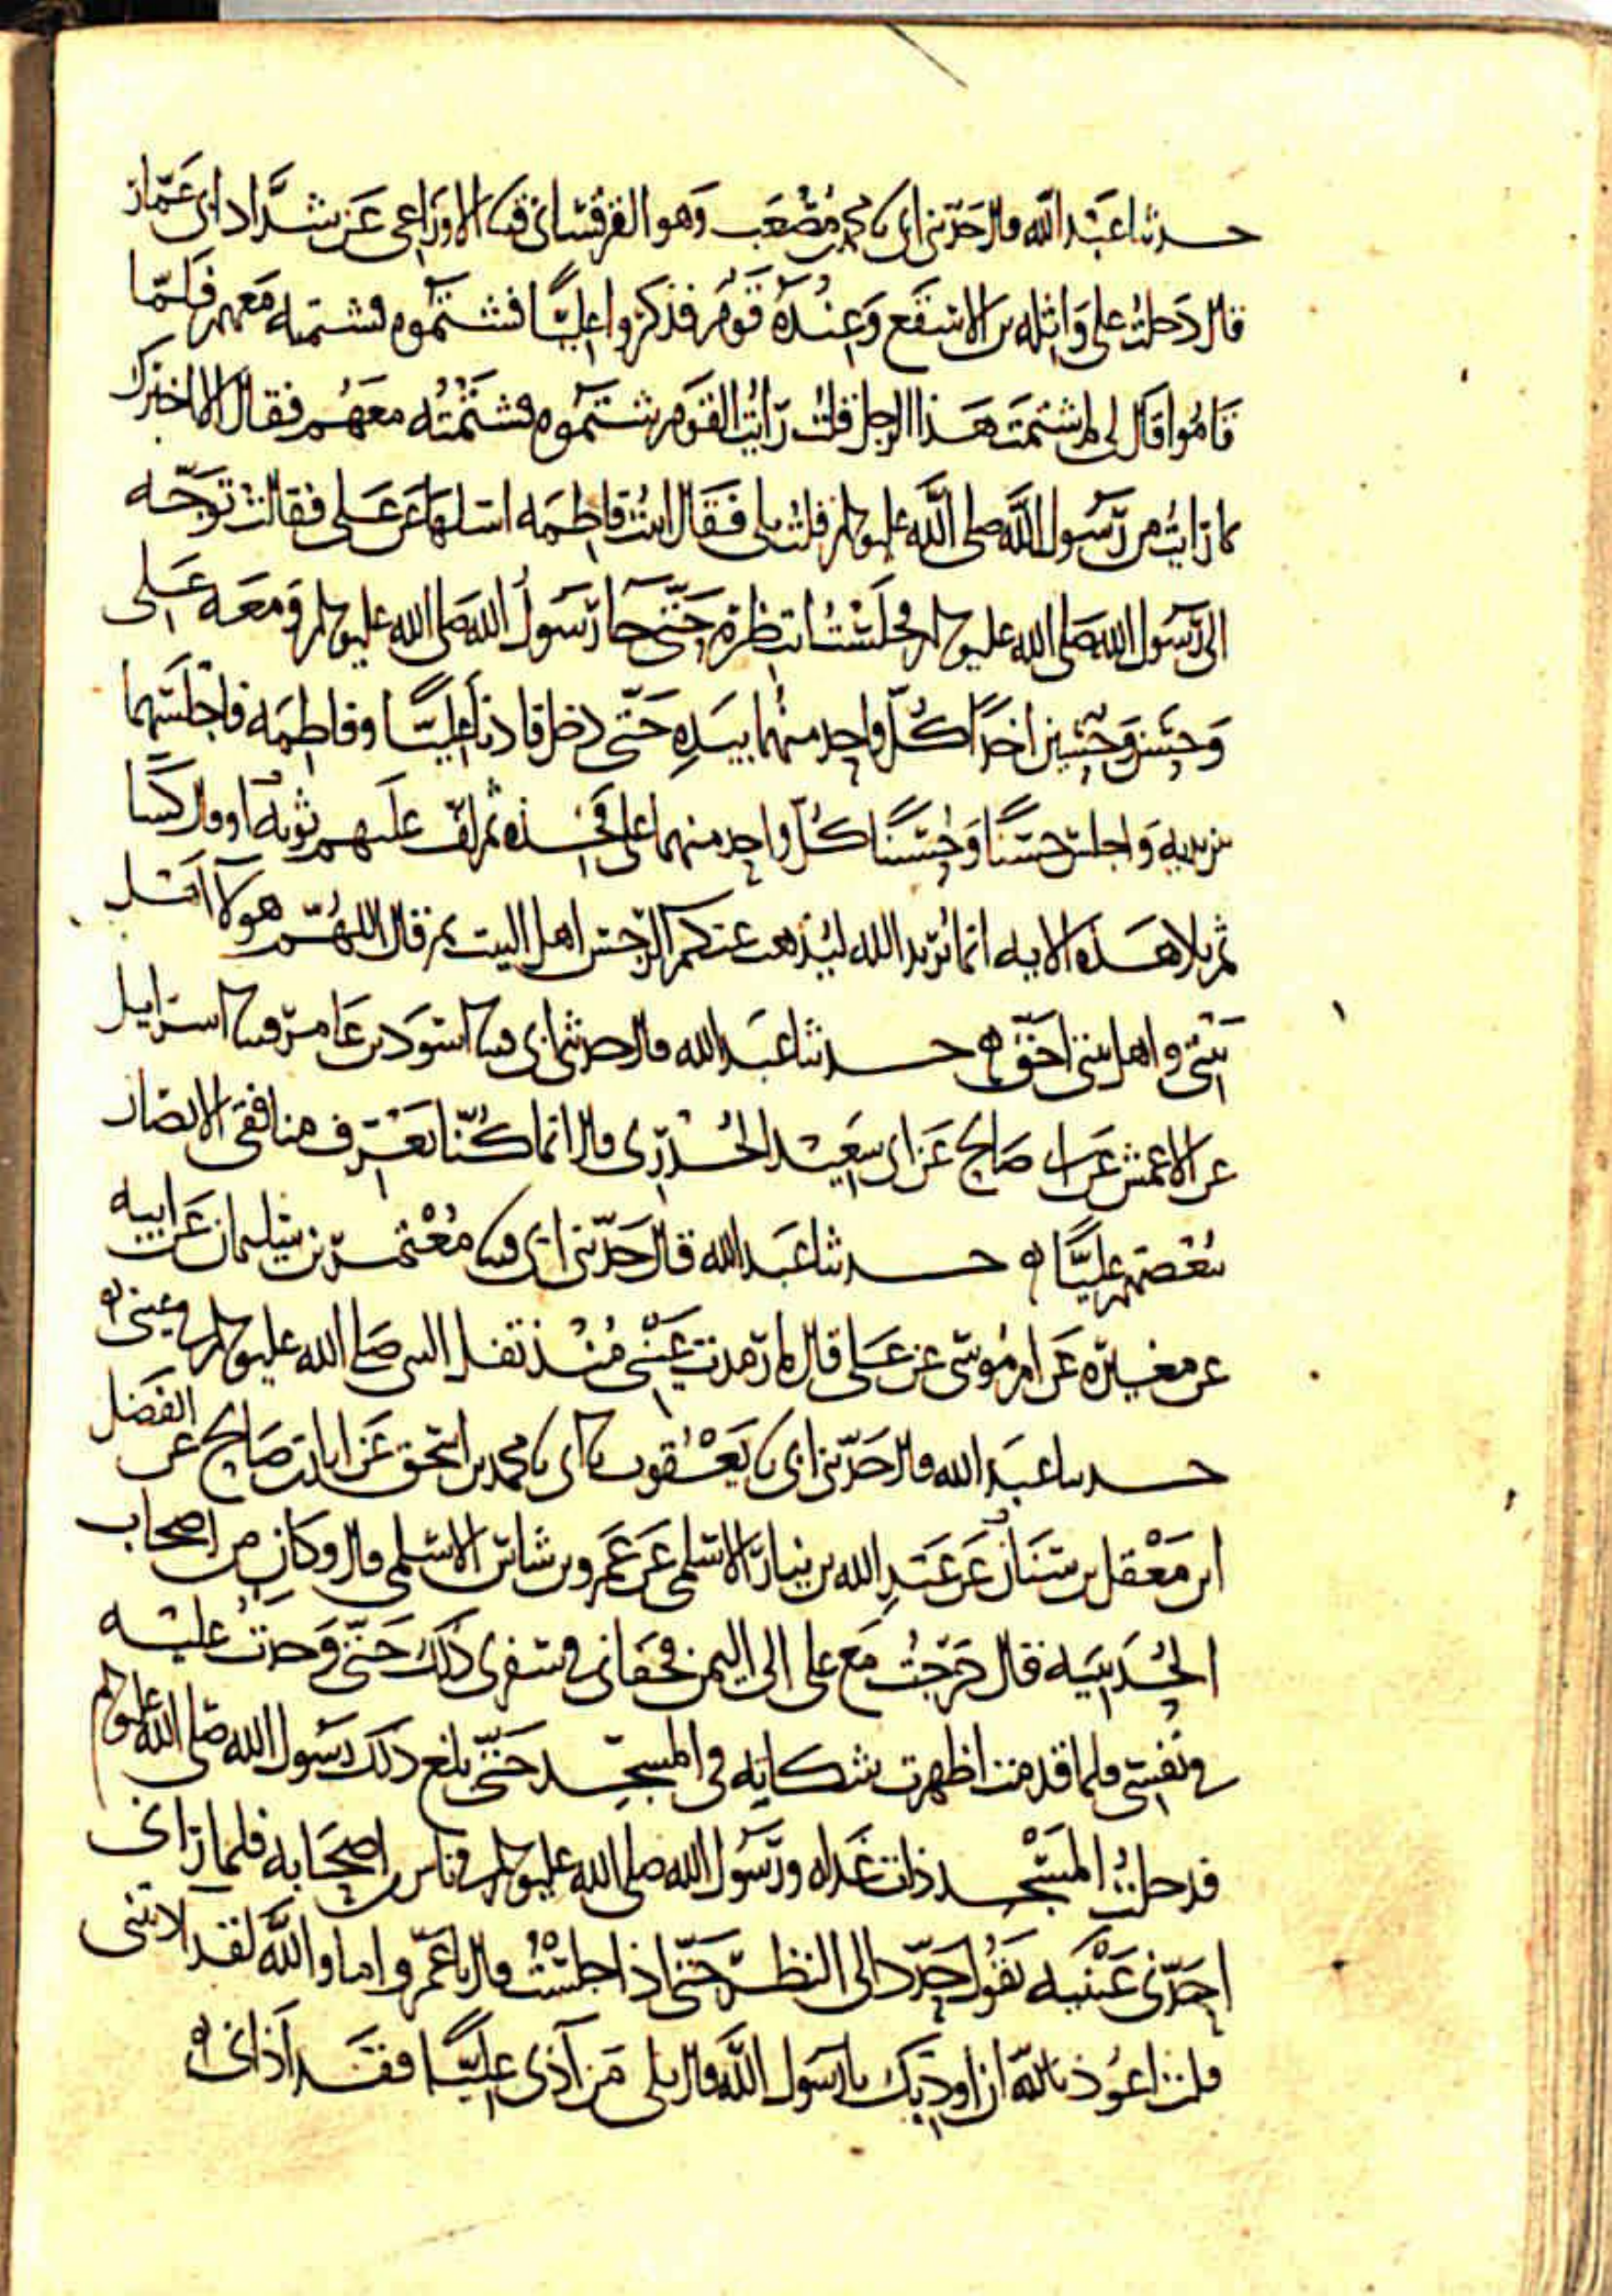 حدثنا عبد الله قال حدثني ابي نا محمد بن مصعب وهو القرقساني قثنا الاوزاعي عن شداد ابي عمار
قال دخلت على واثلة بن الاسقع وعنده قوم فذكروا عليا فشتموه فشتمته معهم فلما
قاموا قال لي لم شتمت هذا الرجل قلت رايت القوم شتموه فشتمته معهم فقال الا اخبرك
بما رايت من رسول الله صلى الله عليه وسلم قلت بلى فقال اتيت فاطمة اسلها عن علي فقالت توجه
الى رسول الله صلى الله عليه وسلم فجلست انتظره حتى جا رسول الله صلى الله عليه وسلم ومعه علي
وحسن وحسين اخذا كل واحد منهما بيده حتى دخل فادنا عليا وفاطمة فاجلسهما
بين يديه واجلس حسنا وحسينا كل واحد منهما على فخذه ثم لف عليهم ثوبه او قال كسا
ثم تلا هذه الاية انما يريد الله ليذهب عنكم الرجس اهل البيت ثم قال اللهم هولا اهل
بيتي واهل بيتي احق ه حدثنا عبد الله قال حدثني ابي قثنا اسود بن عامر قثنا اسرايل
عن الاعمش عن ابي صالح عن ابي سعيد الخدري قال انما كنا نعرف منافقي الانصار
ببغضهم عليا ه حدثنا عبد الله قال حدثني ابي قثنا معتمر بن سليمان عن ابيه
عن مغيرة عن ام موسى عن علي قال ما رمدت عيني منذ تفل النبي صلى الله عليه وسلم في عيني ه
حدثنا عبد الله قال حدثني ابي نا يعقوب نا ابي نا محمد بن اسحق عن ابان بن صالح عن الفضل
ابن معقل بن سنان عن عبد الله بن نيار الاسلمي عن عمرو بن شاس الاسلمي قال وكان من اصحاب
الحديبية قال خرجت مع علي الى اليمن فجفاني في سفري ذلك حتى وجدت عليه
في نفسي فلما قدمت اظهرت شكايته في المسجد حتى بلغ ذلك رسول الله صلى الله عليه وسلم
فدخلت المسجد ذات غداة ورسول الله صلى الله عليه وسلم في ناس من اصحابه فلما راني
احدني عينيه يقول حدد الي النظر حتى اذا جلست قال يا عمرو اما والله لقد اذيتني
قلت اعوذ بالله ان اوذيك يا رسول الله قال بلى من آذى عليا فقد آذاني ه